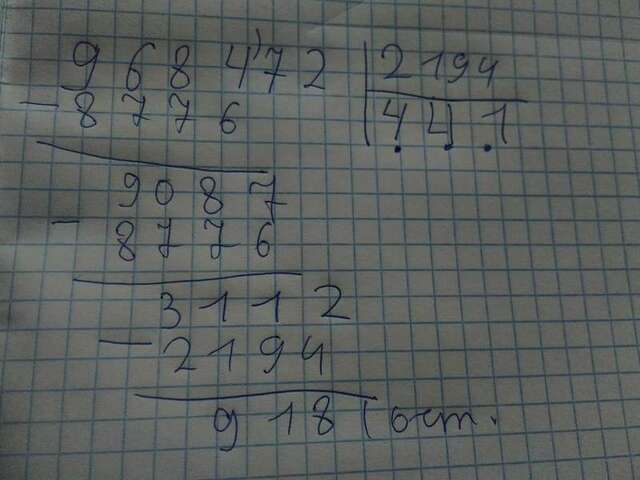 968472 2194
- 8776 441
9087
- 8776
3112
- 2194
918 (ост.